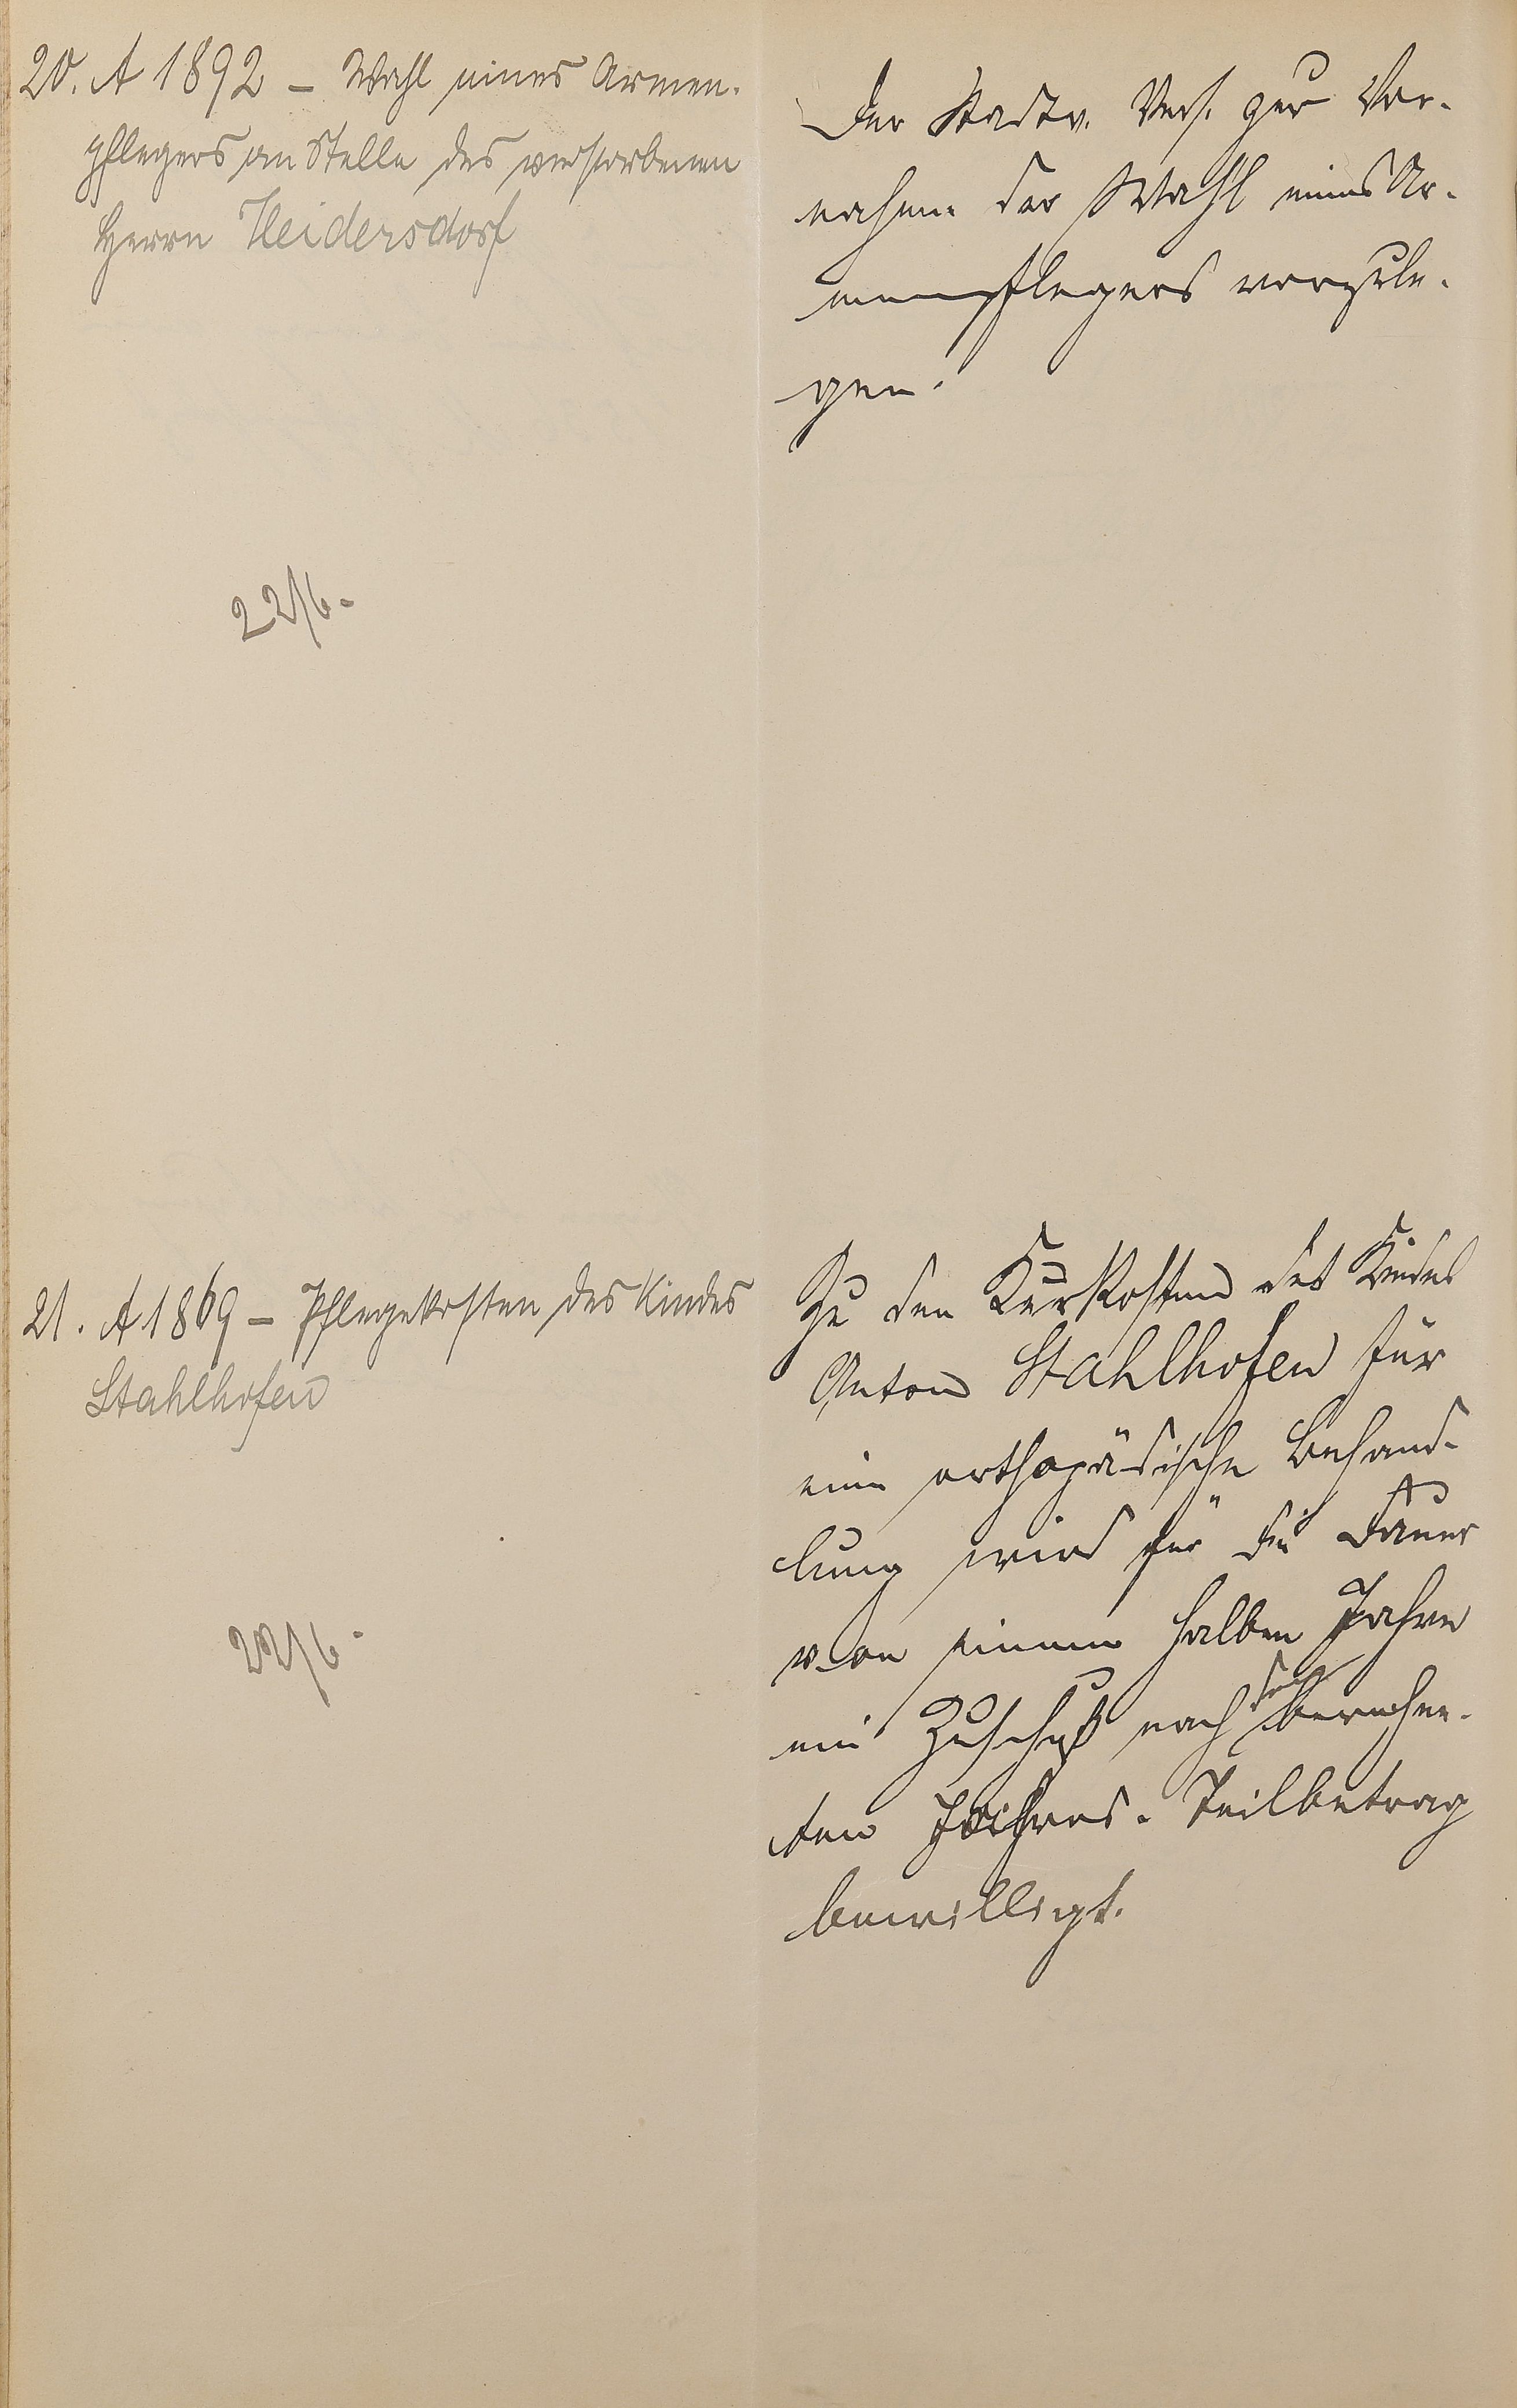 20. A 1892 – Wahl eines Armen-
pflegers an Stelle des verstorbenen
Herrn Heidersdorf
22/6.
Der Stadtv. Vers. zur Vor-
nahme der Wahl eines Ar-
menpflegers vorzule-
gen.
21. A 1869 – Pflegekosten des Kindes
Stahlhofen
22/6.
Zu den Kurkosten des Kindes
Anton Stahlhofen für
eine orthopädische Behand-
lung wird für die Dauer
von einem halben Jahre
ein Zuschuß nach dem berechne-
ten Jahres-Teilbetrag
bewilligt.